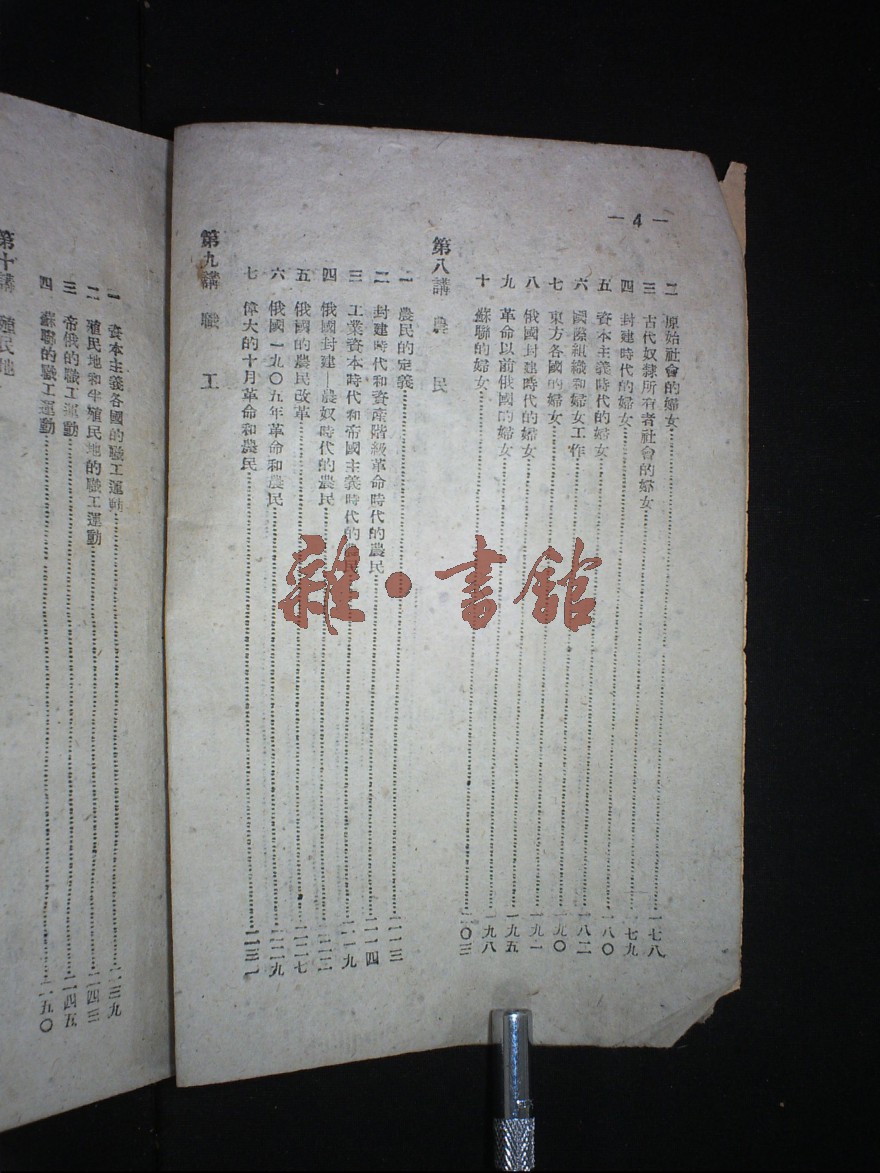 —4—
二 原始社會的婦女……一七八
三 古代奴隸所有者社會的婦女……一七九
四 封建時代的婦女……一八〇
五 資本主義時代的婦女……一八二
六 國際組織和婦女工作……一九〇
七 東方各國的婦女……一九一
八 俄國封建時代的婦女……一九五
九 革命以前俄國的婦女……一九八
十 蘇聯的婦女……二〇三
第八講 農民
一 農民的定義……二一三
二 封建時代和資產階級革命時代的農民……二一四
三 工業資本時代和帝國主義時代的農民……二一九
四 俄國封建—農奴時代的農民……二二二
五 俄國的農民改革……二二七
六 俄國一九〇五年革命和農民……二二九
七 偉大的十月革命和農民……二三一
第九講 職工
一 資本主義各國的職工運動……二三九
二 殖民地和半殖民地的職工運動……二四三
三 帝俄的職工運動……二四五
四 蘇聯的職工運動……二五〇
第十講 殖民地
雜·書館